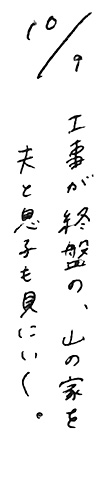 10/9
工事が終盤の、山の家を
夫と息子も見にいく。